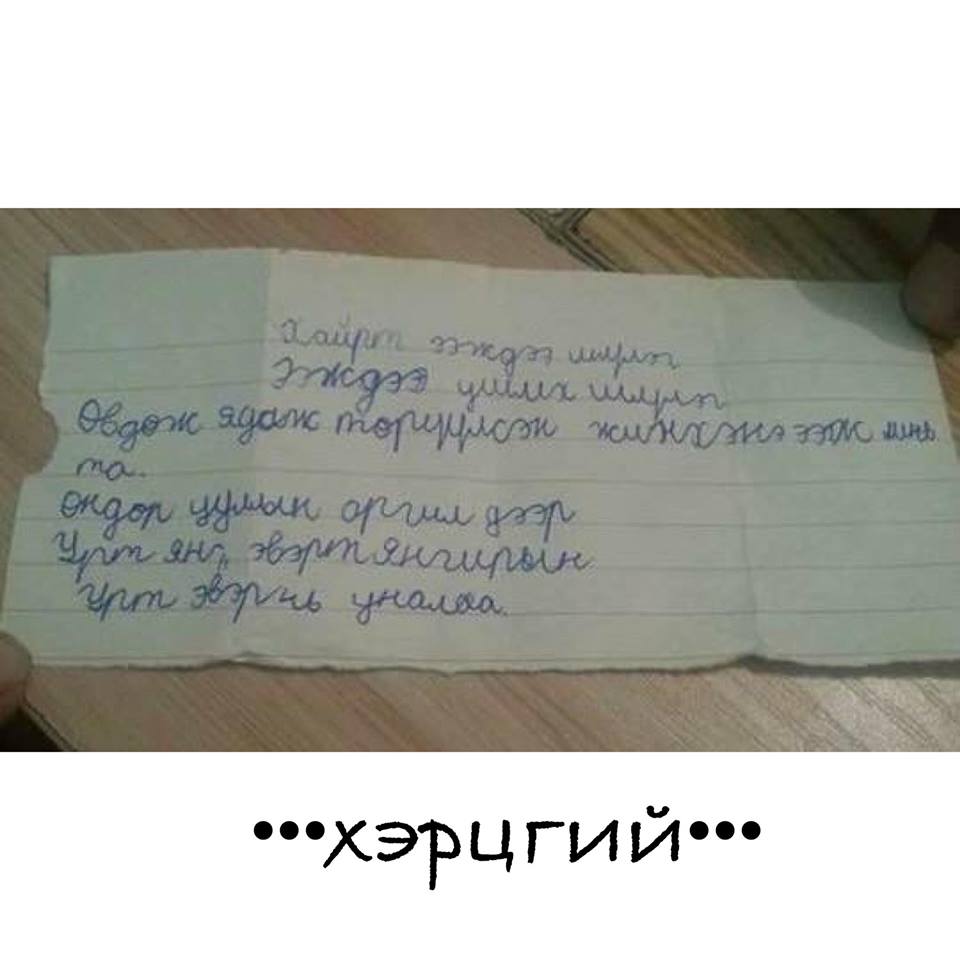 Хайрт ээждээ шүлэг
Ээждээ уших шүлэг
Өвдөж ядаж төрүүлсэн жинхэнэ ээж минь
та.
Өндөр уулын оргил дээр
Урт янг эвэрт янгирын
Урт эвэр нь уналаа.
•••хэрцгий•••